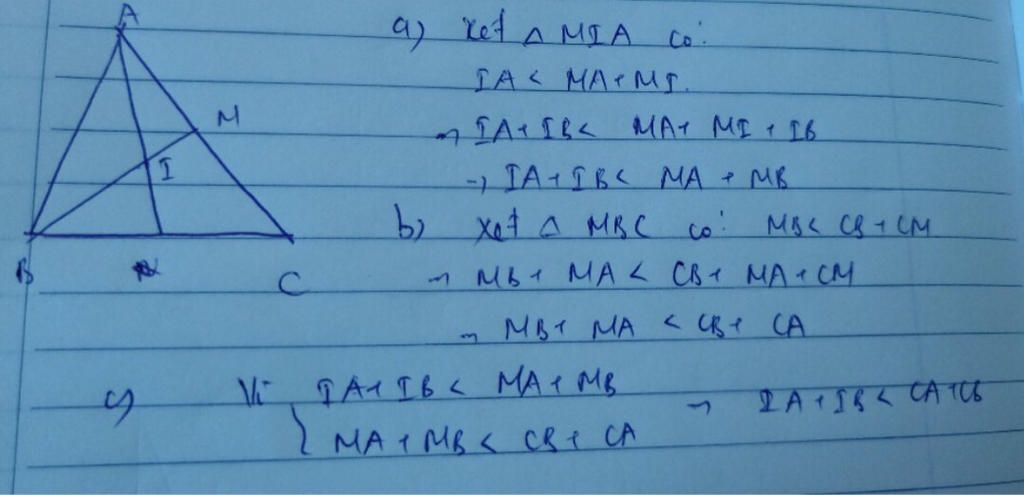 A
M
I
B
N
C
a) Xét △ MIA có:
IA < MA + MI.
→ IA + IB < MA + MI + IB
→ IA + IB < MA + MB
b) Xét △ MBC có: MB < CB + CM
→ MB + MA < CB + MA + CM
→ MB + MA < CB + CA
c) Vì { IA + IB < MA + MB → IA + IB < CA + CB
MA + MB < CB + CA